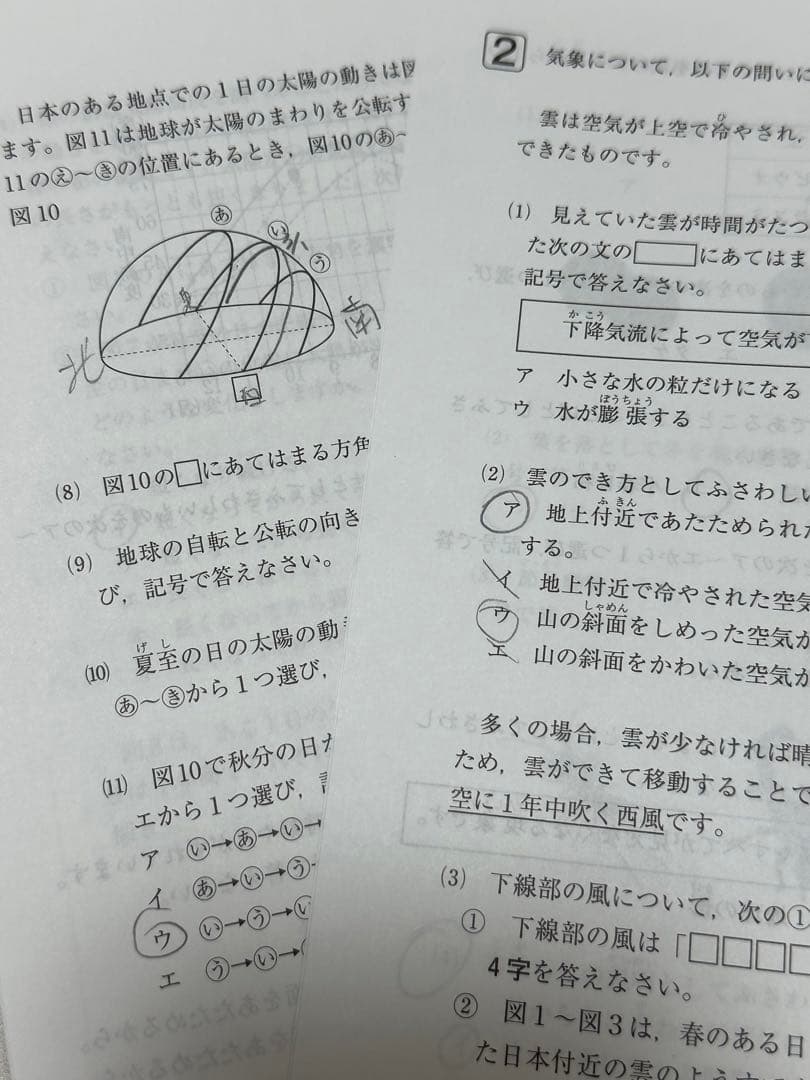 日本のある地点での1日の太陽の動きは図
ます。図11は地球が太陽のまわりを公転す
11のえ～きの位置にあるとき，図10のあ～
図10
あ
い
う
東
南
北
西
(8) 図10の□にあてはまる方角
(9) 地球の自転と公転の向き
び，記号で答えなさい。
げし
(10) 夏至の日の太陽の動き
あ～きから1つ選び，
(11) 図10で秋分の日か
エから1つ選び，
ア い→あ→い→
イ あ→い→う
ウ い→う→い
エ う→い→
2 気象について，以下の問いに
雲は空気が上空で冷やされ，
ひ
できたものです。
(1) 見えていた雲が時間がたつ
た次の文の□にあてはま
記号で答えなさい。
かこう
下降気流によって空気が
ア 小さな水の粒だけになる
ぼうちょう
ウ 水が膨張する
(2) 雲のでき方としてふさわしい
ふきん
ア 地上付近であたためられた
する。
イ 地上付近で冷やされた空気
しゃめん
ウ 山の斜面をしめった空気が
エ 山の斜面をかわいた空気が
多くの場合，雲が少なければ晴
ため，雲ができて移動することで
空に1年中吹く西風です。
(3) 下線部の風について，次の①
① 下線部の風は「□□□□
4字を答えなさい。
② 図1～図3は，春のある日
た日本付近の雲のようす